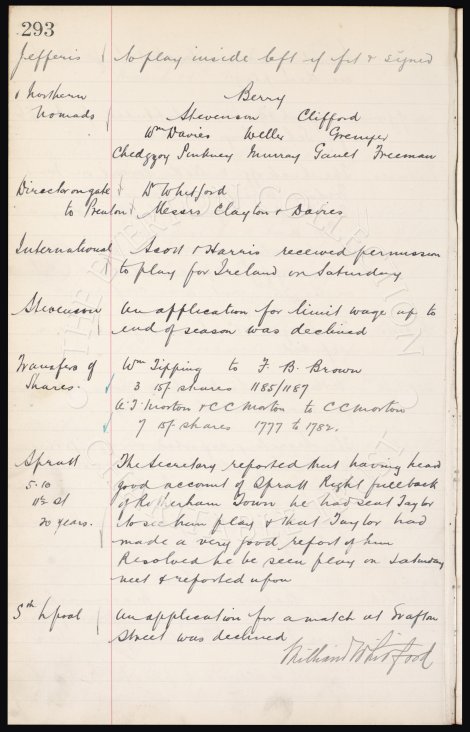 293
Jefferis to play inside left if fit & signed
Northern Nomads
Berry
Stevenson Clifford
Wm Davies Weller Grenyer
Chedgzoy Pinkney Murray Gault Freeman
Directors on gate Dr Whitford
to Preston Messrs Clayton & Davies
International Scott & Harris received permission
to play for Ireland on Saturday
Stevenson An application for limit wage up to
end of season was declined
Transfers of Wm Tipping to F. B. Brown
Shares. 3 15/- shares 1185/1187
A. T. Morton & C C Morton to C C Morton
7 15/- shares 1777 to 1782.
Spratt The Secretary reported that having heard
5.10 good account of Spratt Right full back
11½ st of Rotherham Town he had sent Taylor
20 years. to see him play & that Taylor had
made a very good report of him
Resolved he be seen play on Saturday
next & reported upon
Sth Lpool An application for a match at Grafton
Street was declined
William Whitford
THE EVERTON COLLECTION